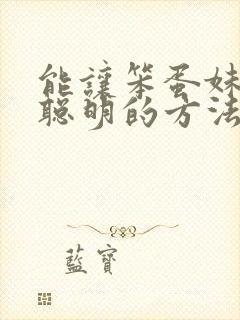 能讓笨蛋妹
聰明的方法
藍寶